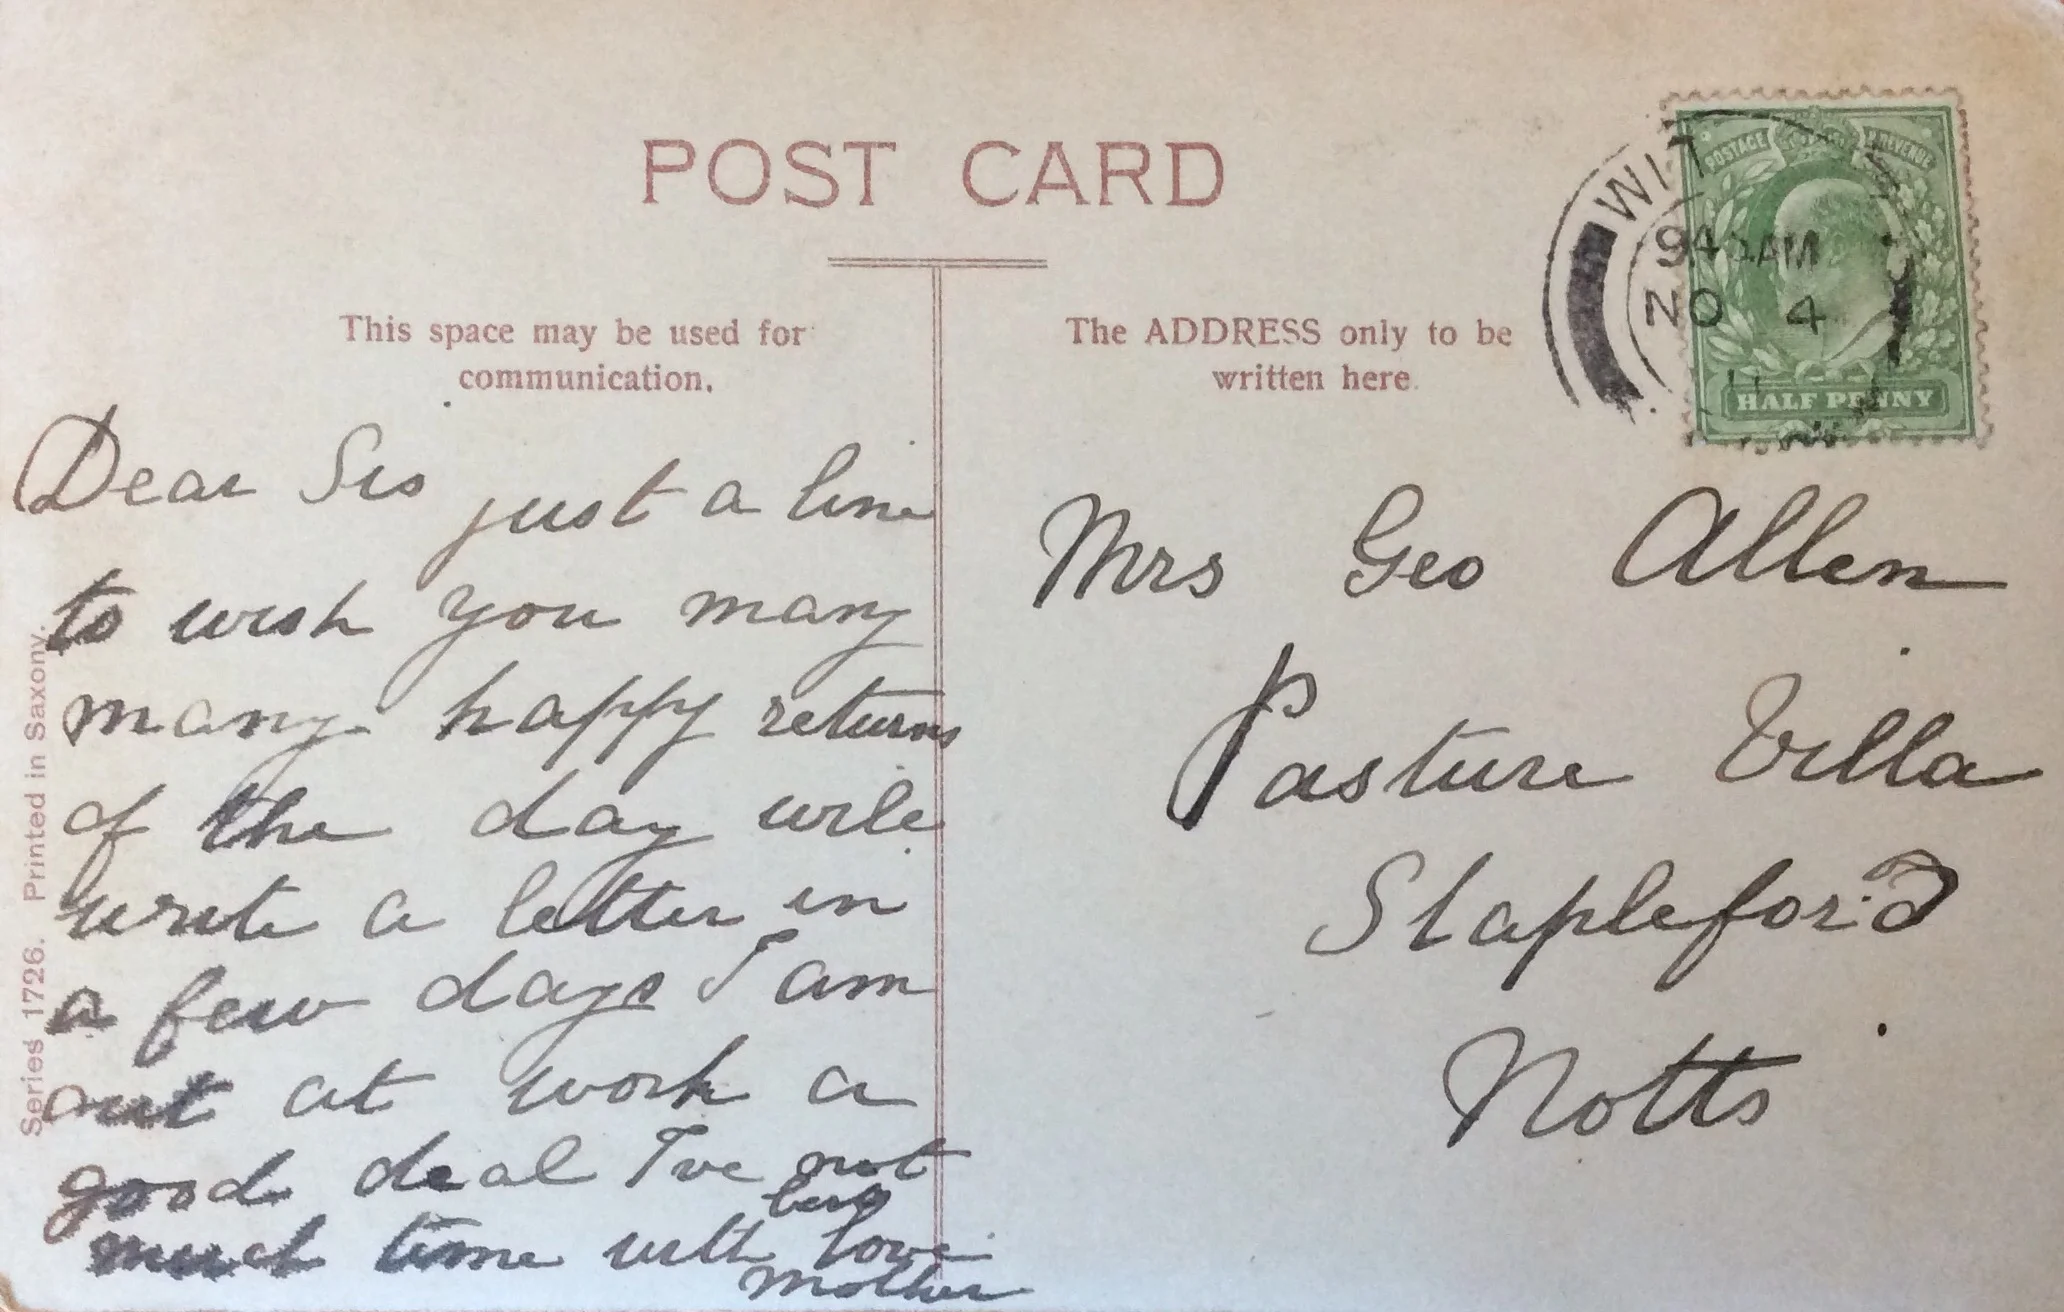 POST CARD
This space may be used for
communication.
The ADDRESS only to be
written here
POSTAGE REVENUE
WIT
940AM
NO 4
11
HALF PENNY
Dear Sis just a line
to wish you many
many happy returns
of the day wile
write a letter in
a few days I am
out at work a
good deal Ive not
much time with love
Mother
Mrs Geo Allen
Pasture Villa
Stapleford
Notts
Series 1726. Printed in Saxony.